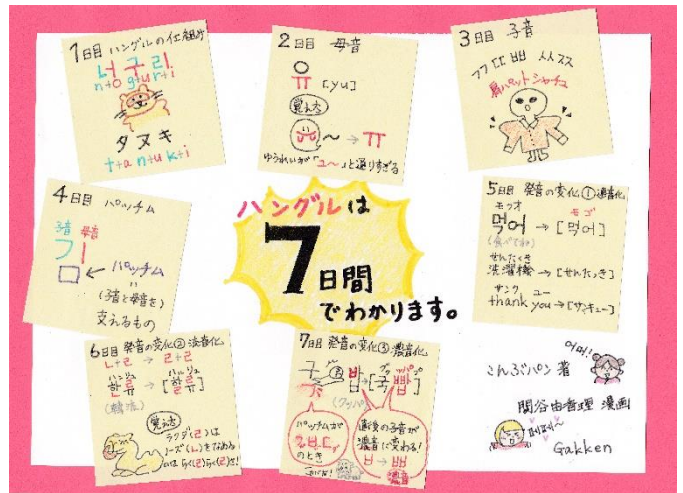 1日目 ハングルの仕組み
너구리
n+o g+u r+i
タヌキ
t+a n+u k+i
2日目 母音
유
ㅠ [yu]
覚え方
ㅠ 〜 → ㅠ
ゆうれいが「ユ〜」と通りすぎる
3日目 子音
ㄲ ㄸ ㅃ ㅆ ㅉ
肩パットシャチュ
4日目 パッチム
子音 母音
ㄱㅏ
□ ← パッチム
(子音と母音を)
支えるもの
ハングルは
7日間
でわかります。
5日目 発音の変化①連音化
モゴ
먹어 → [머거]
(食べてね)
せんたくき
洗濯機 → [せんたっき]
サンク ユー
thank you → [サンキュー]
6日目 発音の変化② 流音化
ㄴ+ㄹ → ㄹ+ㄹ
ハンリュ ハルリュ
한류 → [할류]
(韓流)
覚え方
ラクダ(ㄹ)は
ノーズ(ㄴ)をなめる
7日目 発音の変化③ 濃音化
국 밥 → [국빱]
(クッパ)
パッチムが
ㄱ,ㅂ,ㄷ
のとき
直後の子音が
濃音に変わる!
ㅂ → ㅃ
濃音
어머!
こんぶパン 著
関谷由香理 漫画
Gakken